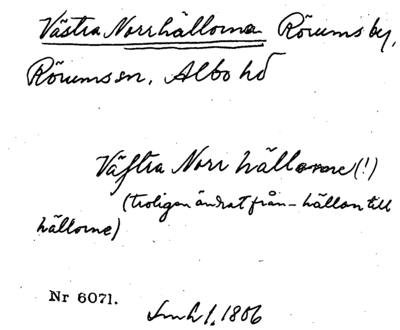 Västra Norrhällorna Rörums by,
Rörums sn, Albo hd
Väſtra Norr hällorne (!)
(troligen ändrat från -hällan till
hällorne)
Nr 6071.
1806